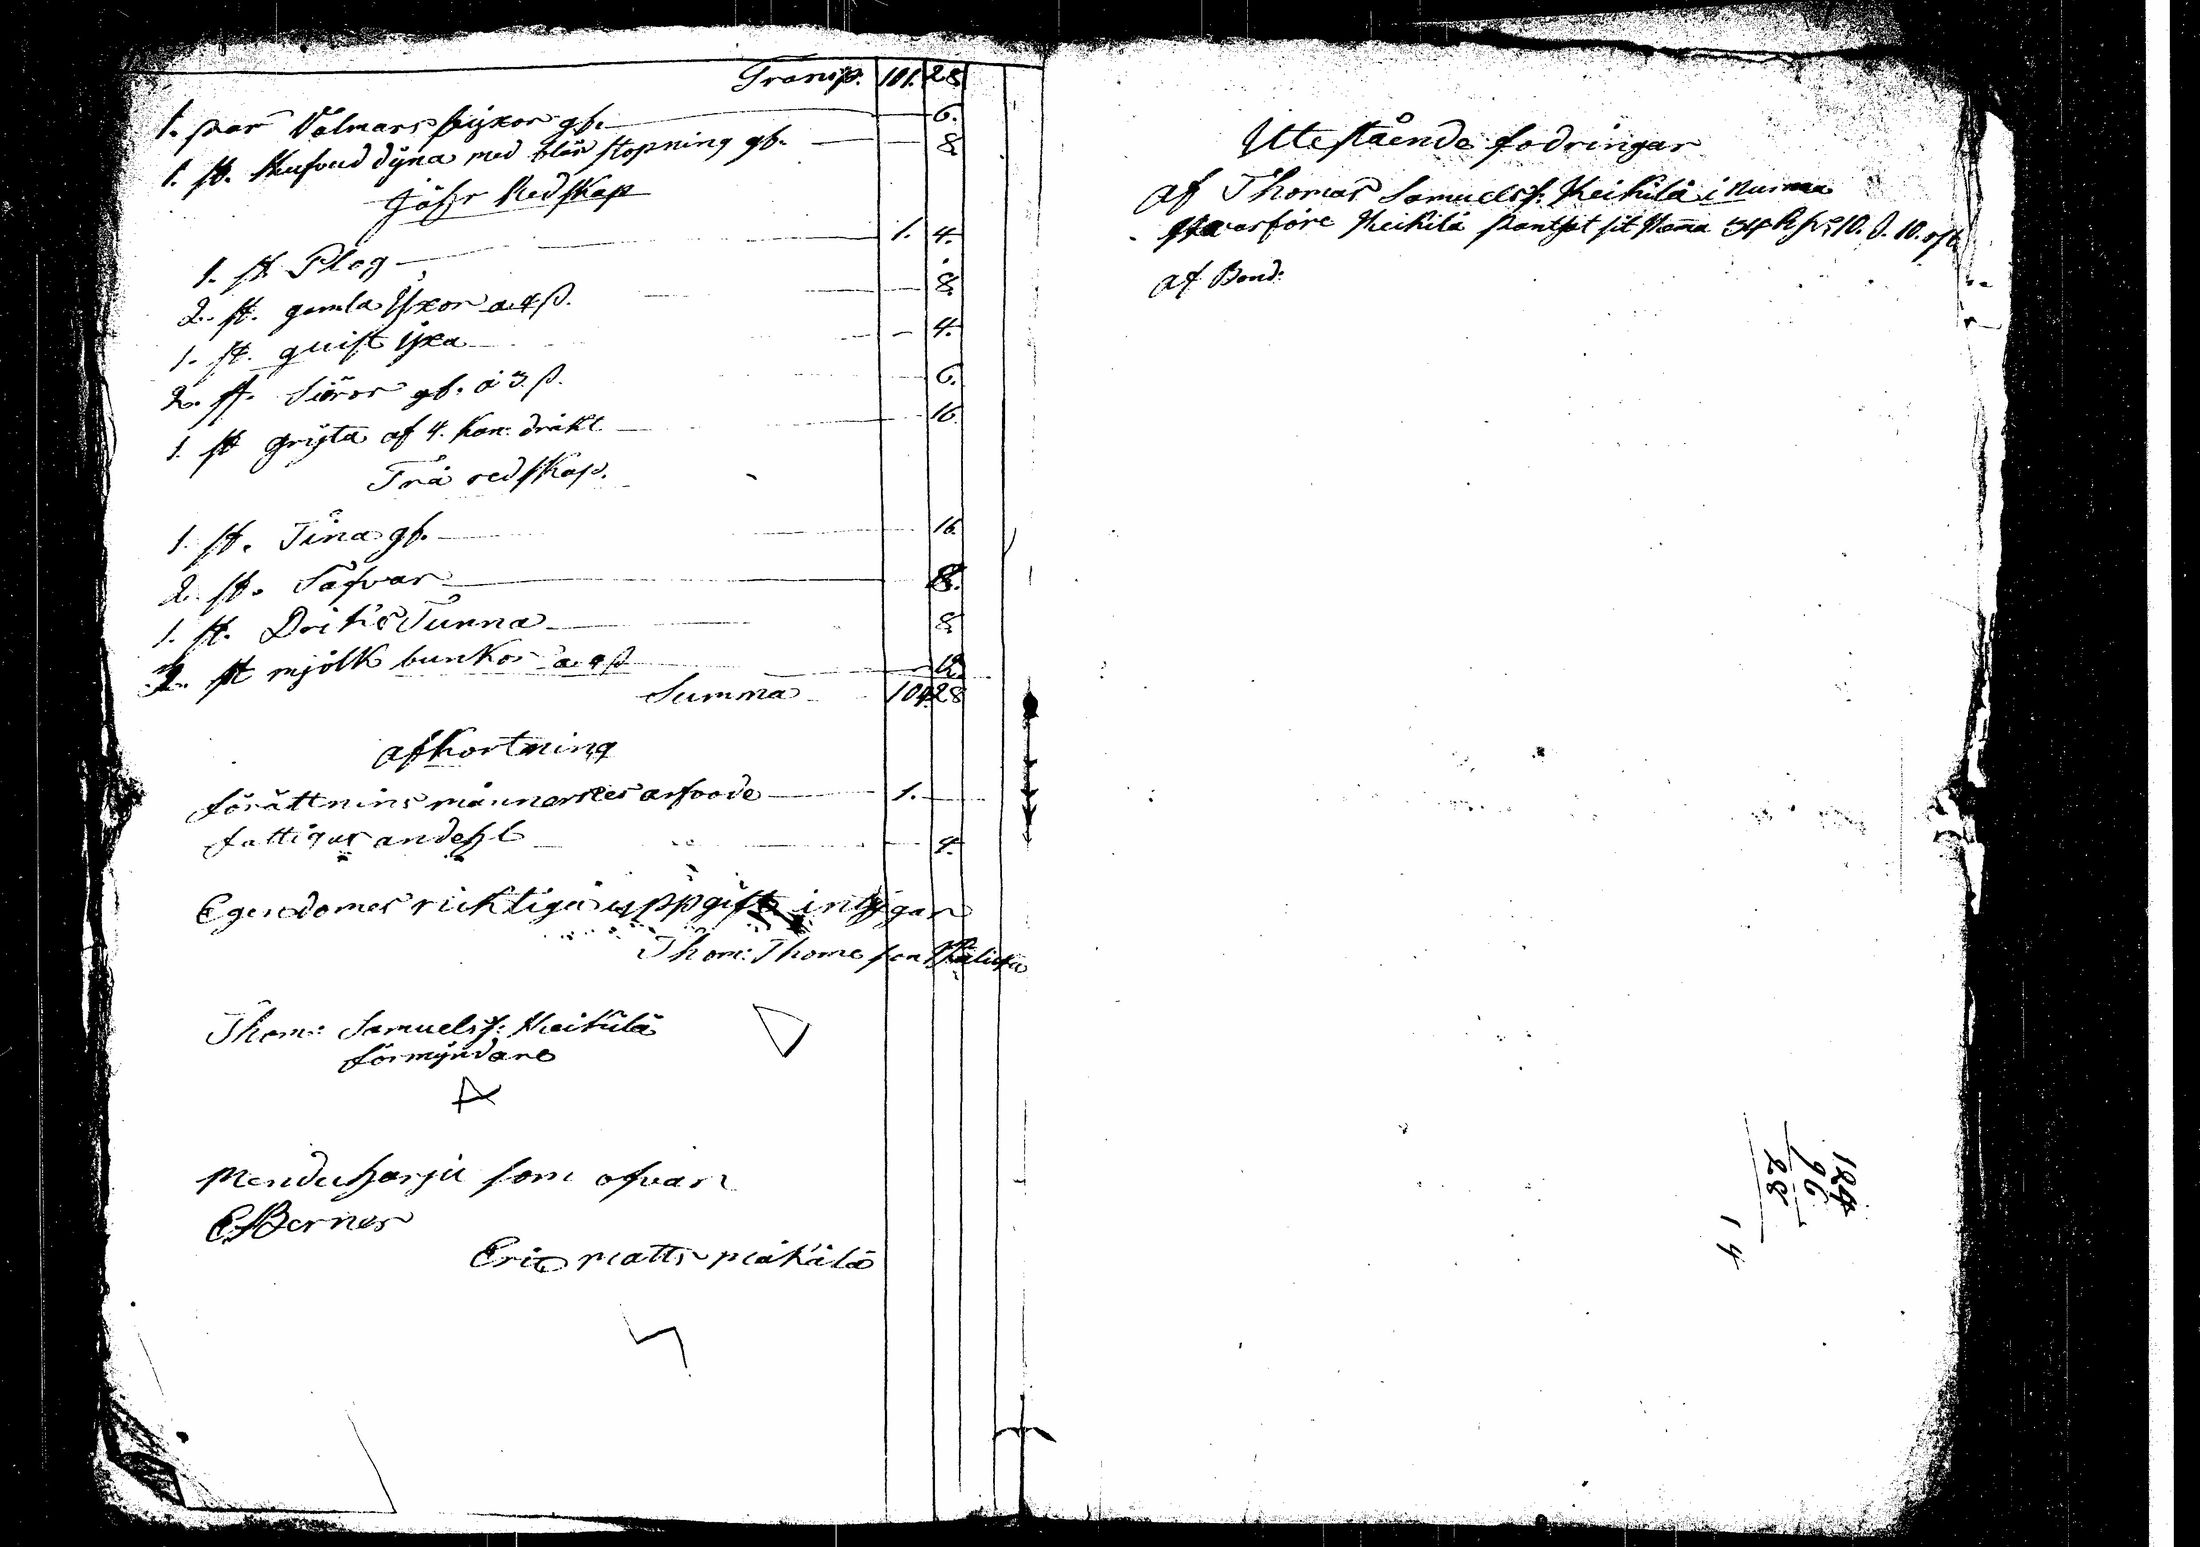 Transp. 101. 28.
1. par Valmars byxor gb. 6.
1. st. Hufvud dyna med blår stopning gb. 8.
Jährn Redskap
1. st. Plog 1. 4.
2. st. gamla Yxor a 4 ß. 8.
1. st. quist yxa 4.
2. st. Skäror gb. á 3. ß. 6.
1. st gryta af 4. kan: drikt 16.
Trä redskap.
1. st. Tina gb. 16.
2. st. Såfvar 8.
1. st. Driks Tunna 8.
3. st mjölk bunkor a 4 ß 12.
Summa 104. 28
afkortning
förättnins männernes arfvode 1.
fattigas andehl 4.
Egendomes ricktiga uppgift intygar
Thom: Thome son
Thom: Samuelss: Heikilä
förmyndare
Menduharju som ofvan
E Berner
Eric Matts Mäkälä
Utestående fodringar
Af Thomas Samuelss: Heikilä i Nurma
hvarföre Heikilä pantsat sit 34 10. 10.
af Bond:
124
96
28
14